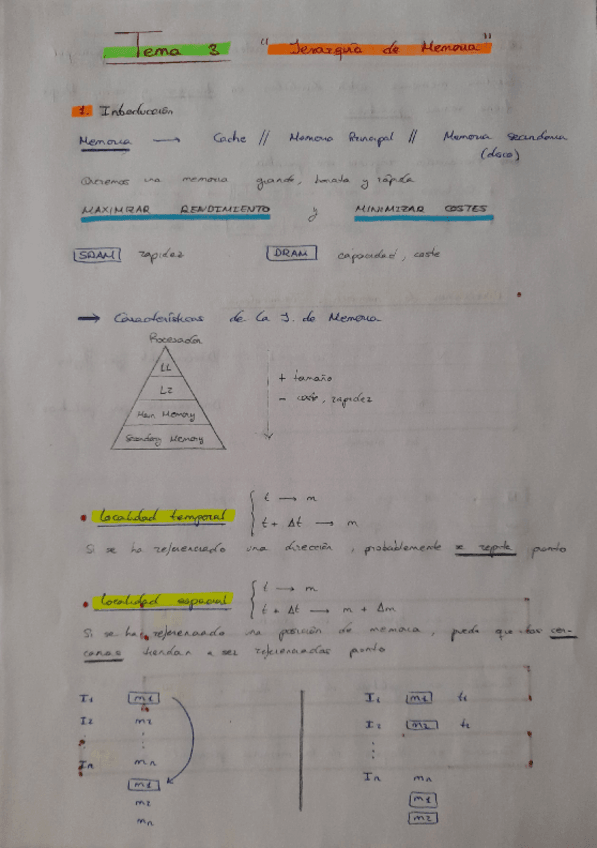 Tema 3 "Jerarquía de Memoria"
1. Introducción
Memoria → Cache // Memoria Principal // Memoria Secundaria
(disco)
Queremos una memoria grande, barata y rápida
MAXIMIZAR RENDIMIENTO y MINIMIZAR COSTES
SRAM rapidez DRAM capacidad, coste
→ Características de la J. de Memoria
Procesador
L1
L2
Main Memory
Secondary Memory
+ tamaño
- coste, rapidez
• localidad temporal { t → m
t + Δt → m
Si se ha referenciado una dirección, probablemente se repita pronto
• localidad espacial { t → m
t + Δt → m + Δm
Si se ha referenciado una posición de memoria, puede que las cer-
canas tiendan a ser referenciadas pronto
I1 m1
I2 m2
⋮ ⋮
In mn
m1
m2
mn
I1 m1 t1
I2 m2 t2
⋮
In mn
m1
m2